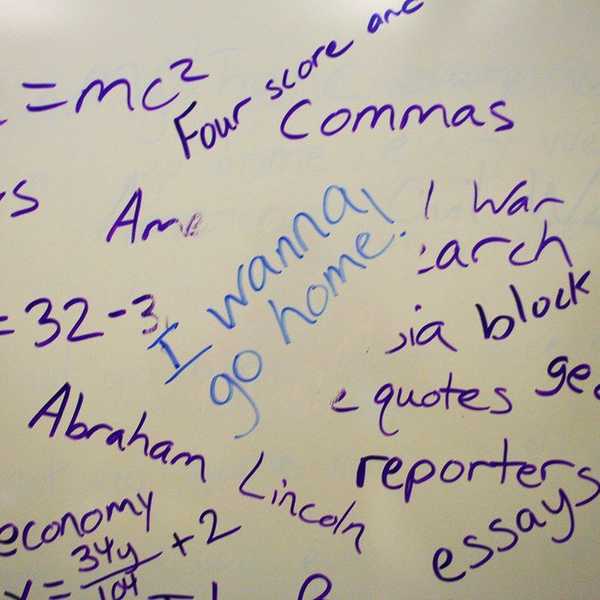 = mc²
Four score and
Commas
Am
I wanna
go home!
= 32 - 3
block
quotes
Abraham Lincoln
reporters
economy
essays
= 34y/104 + 2